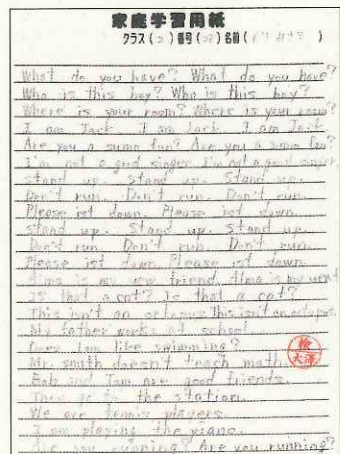 家庭学習用紙
クラス( ) 番号( ) 名前( )
What do you have? What do you have?
Who is this boy? Who is this boy?
Where is your room? Where is your room?
I am Jack I am Jack I am Jack
Are you a sumo fan? Are you a sumo fan?
I'm not a good singer I'm not a good singer
Stand up. Stand up. Stand up.
Don't run. Don't run. Don't run.
Please ist down. Please ist down.
Stand up. Stand up. Stand up.
Don't run Don't run. Don't run.
Please ist down Please ist down
is my new friend.
Is that a cat? Is that a cat?
This isn't an octopus this isn't an octopus
My father works at school.
like swimming?
Mr. smith doesn't teach math.
Bob and Tom are good friends.
They go to the station.
We are tennis players.
I am playing the piano.
Are you running? Are you running?